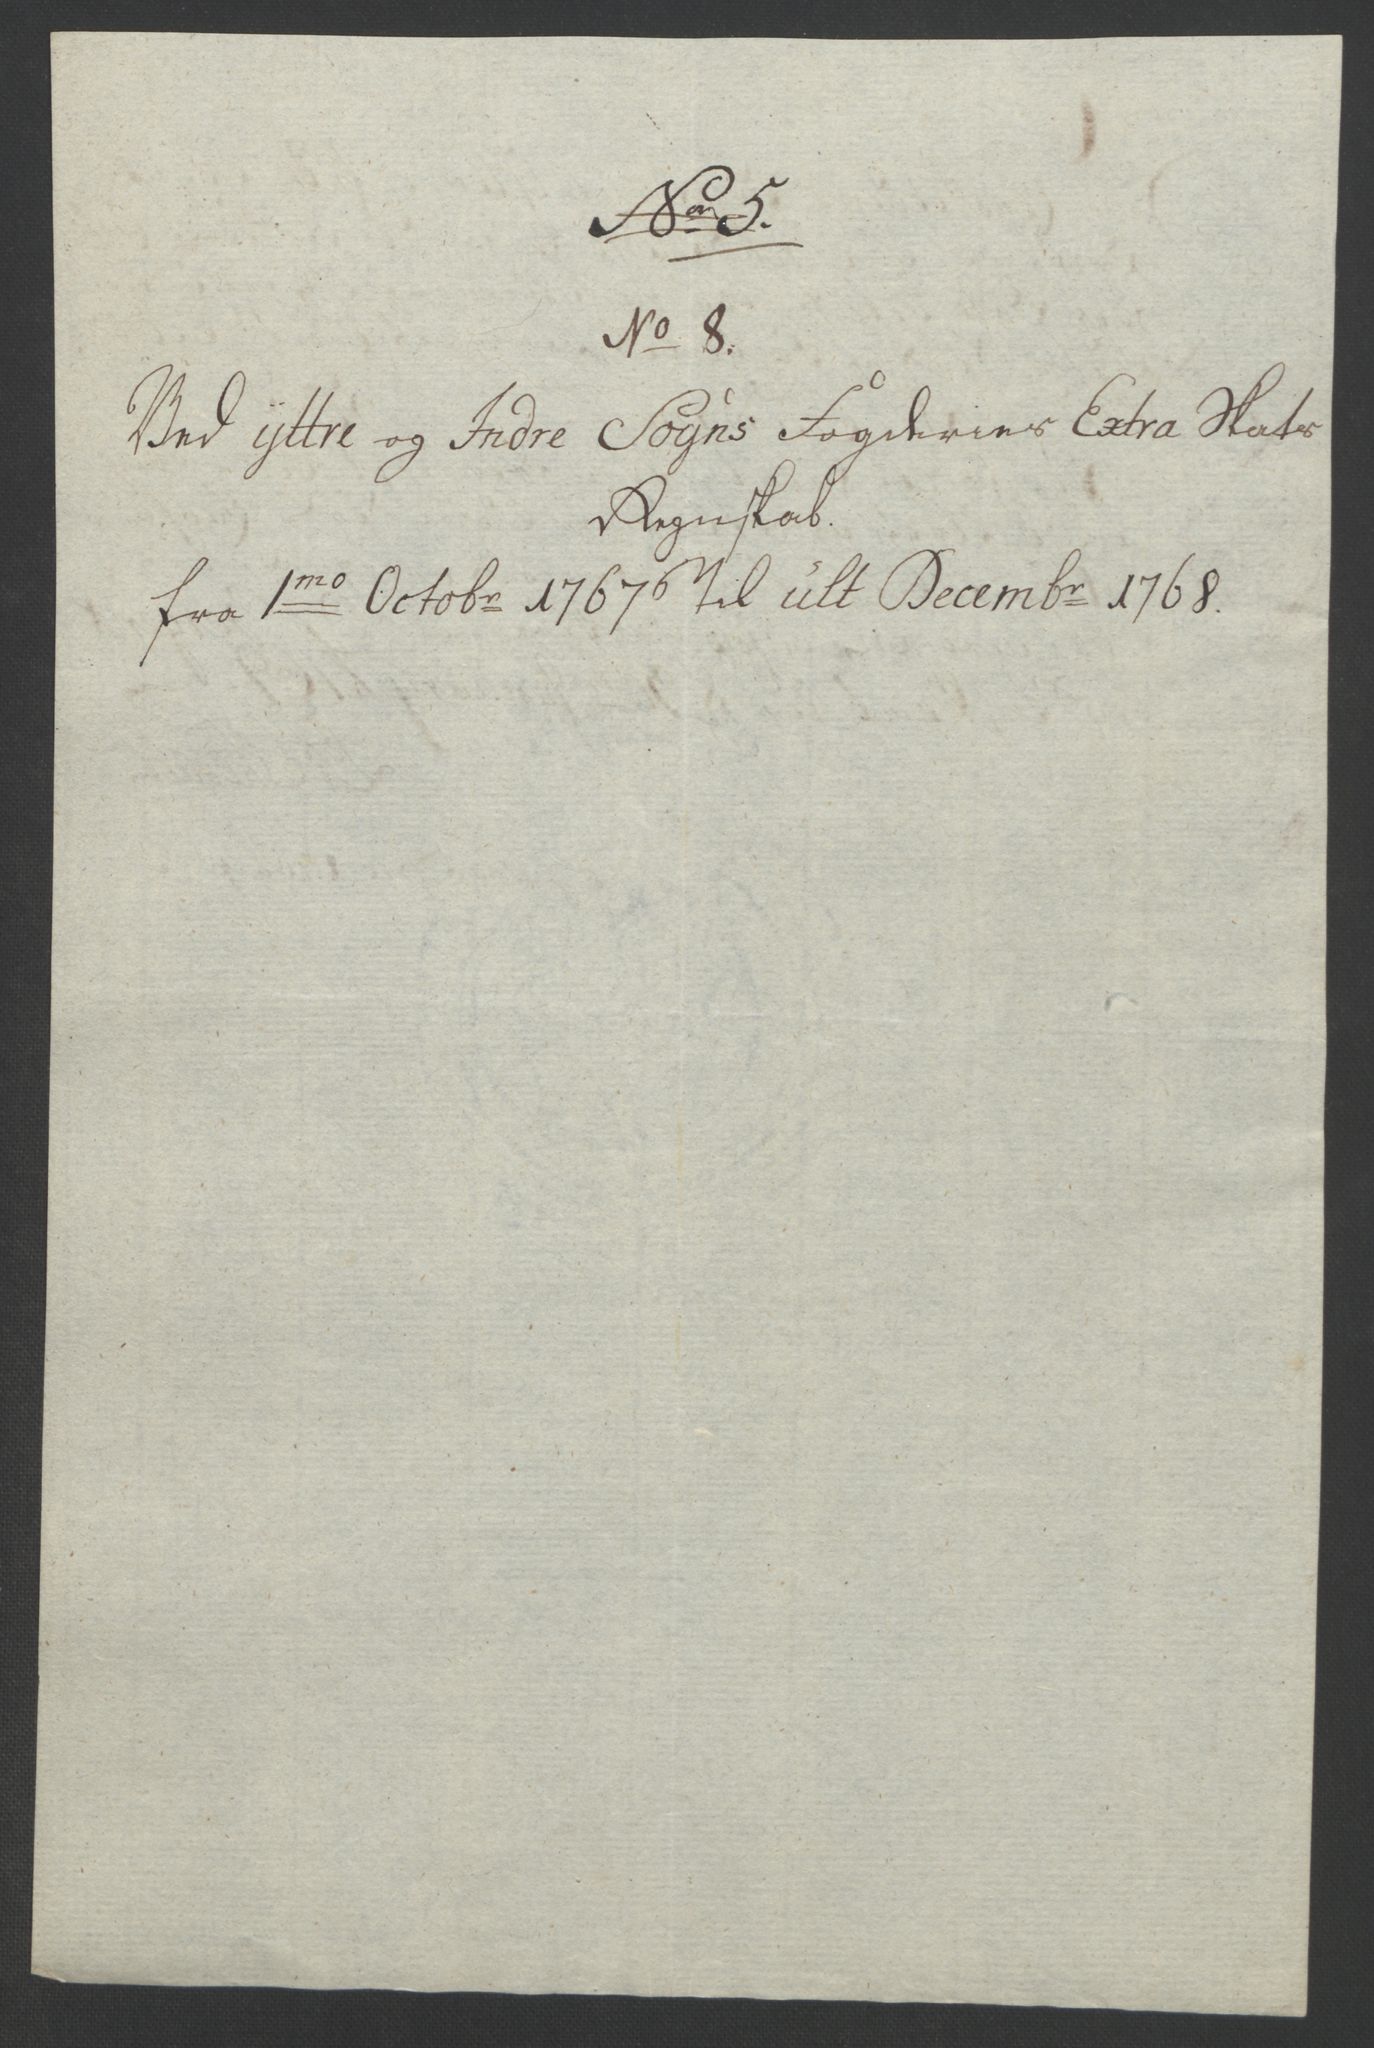 No 5.
No 8.
Ved ÿttre og Indre Sogns Fogderies Extra Skats
Regnskab.
fra 1mo Octobr 1767 Til ult Decembr 1768.